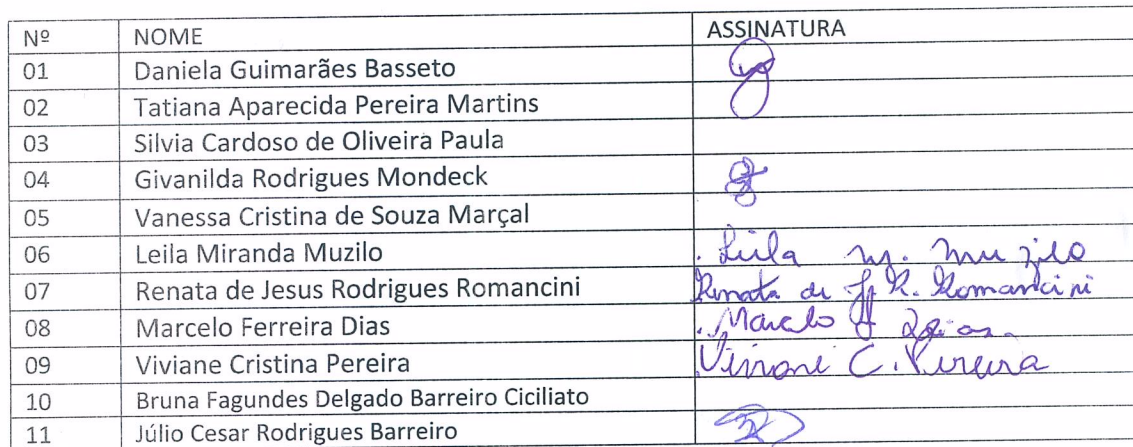 Nº NOME ASSINATURA
01 Daniela Guimarães Basseto
02 Tatiana Aparecida Pereira Martins
03 Silvia Cardoso de Oliveira Paula
04 Givanilda Rodrigues Mondeck
05 Vanessa Cristina de Souza Marçal
06 Leila Miranda Muzilo . Leila M. Muzilo
07 Renata de Jesus Rodrigues Romancini Renata de J. R. Romancini
08 Marcelo Ferreira Dias . Marcelo F Dias
09 Viviane Cristina Pereira Viviane C. Pereira
10 Bruna Fagundes Delgado Barreiro Ciciliato
11 Júlio Cesar Rodrigues Barreiro